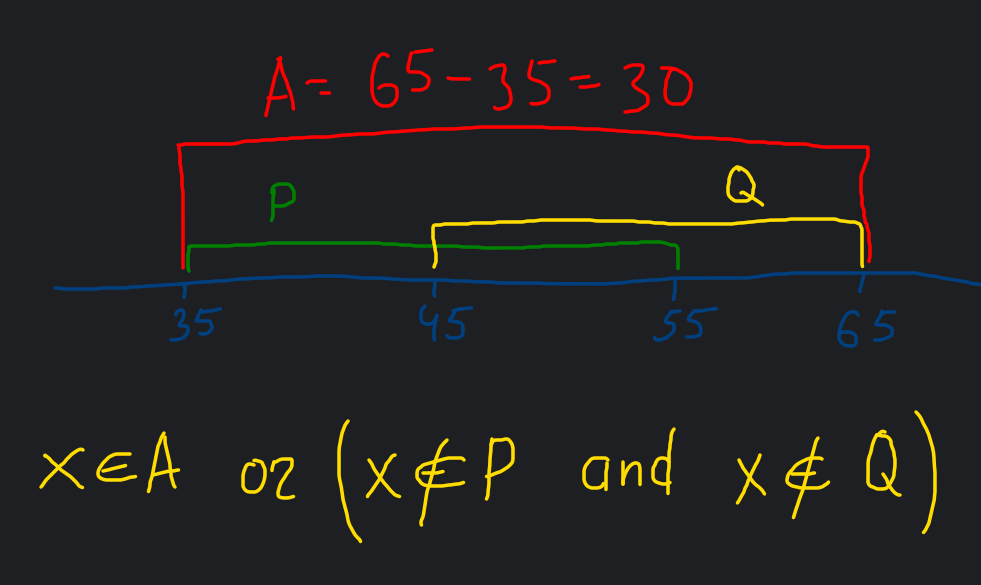 A = 65 - 35 = 30
P Q
35 45 55 65
x ∈ A or (x ∉ P and x ∉ Q)